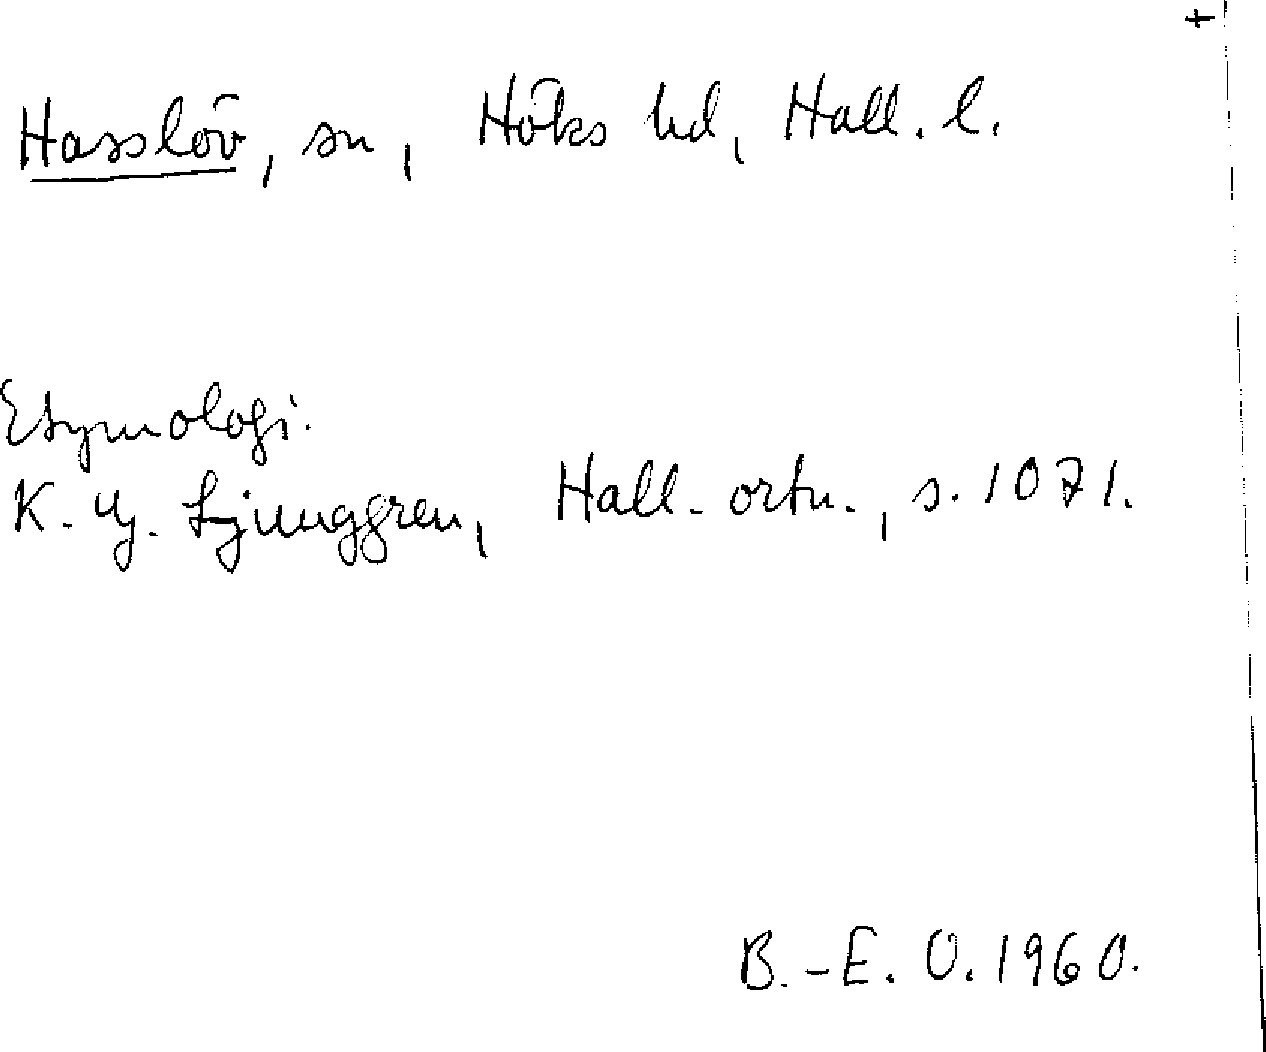 +
Hasslöv, sn, Höks hd, Hall. l.
Etymologi.
K. G. Ljunggren, Hall. ortn., s. 107 f.
B.-E. O. 1960.